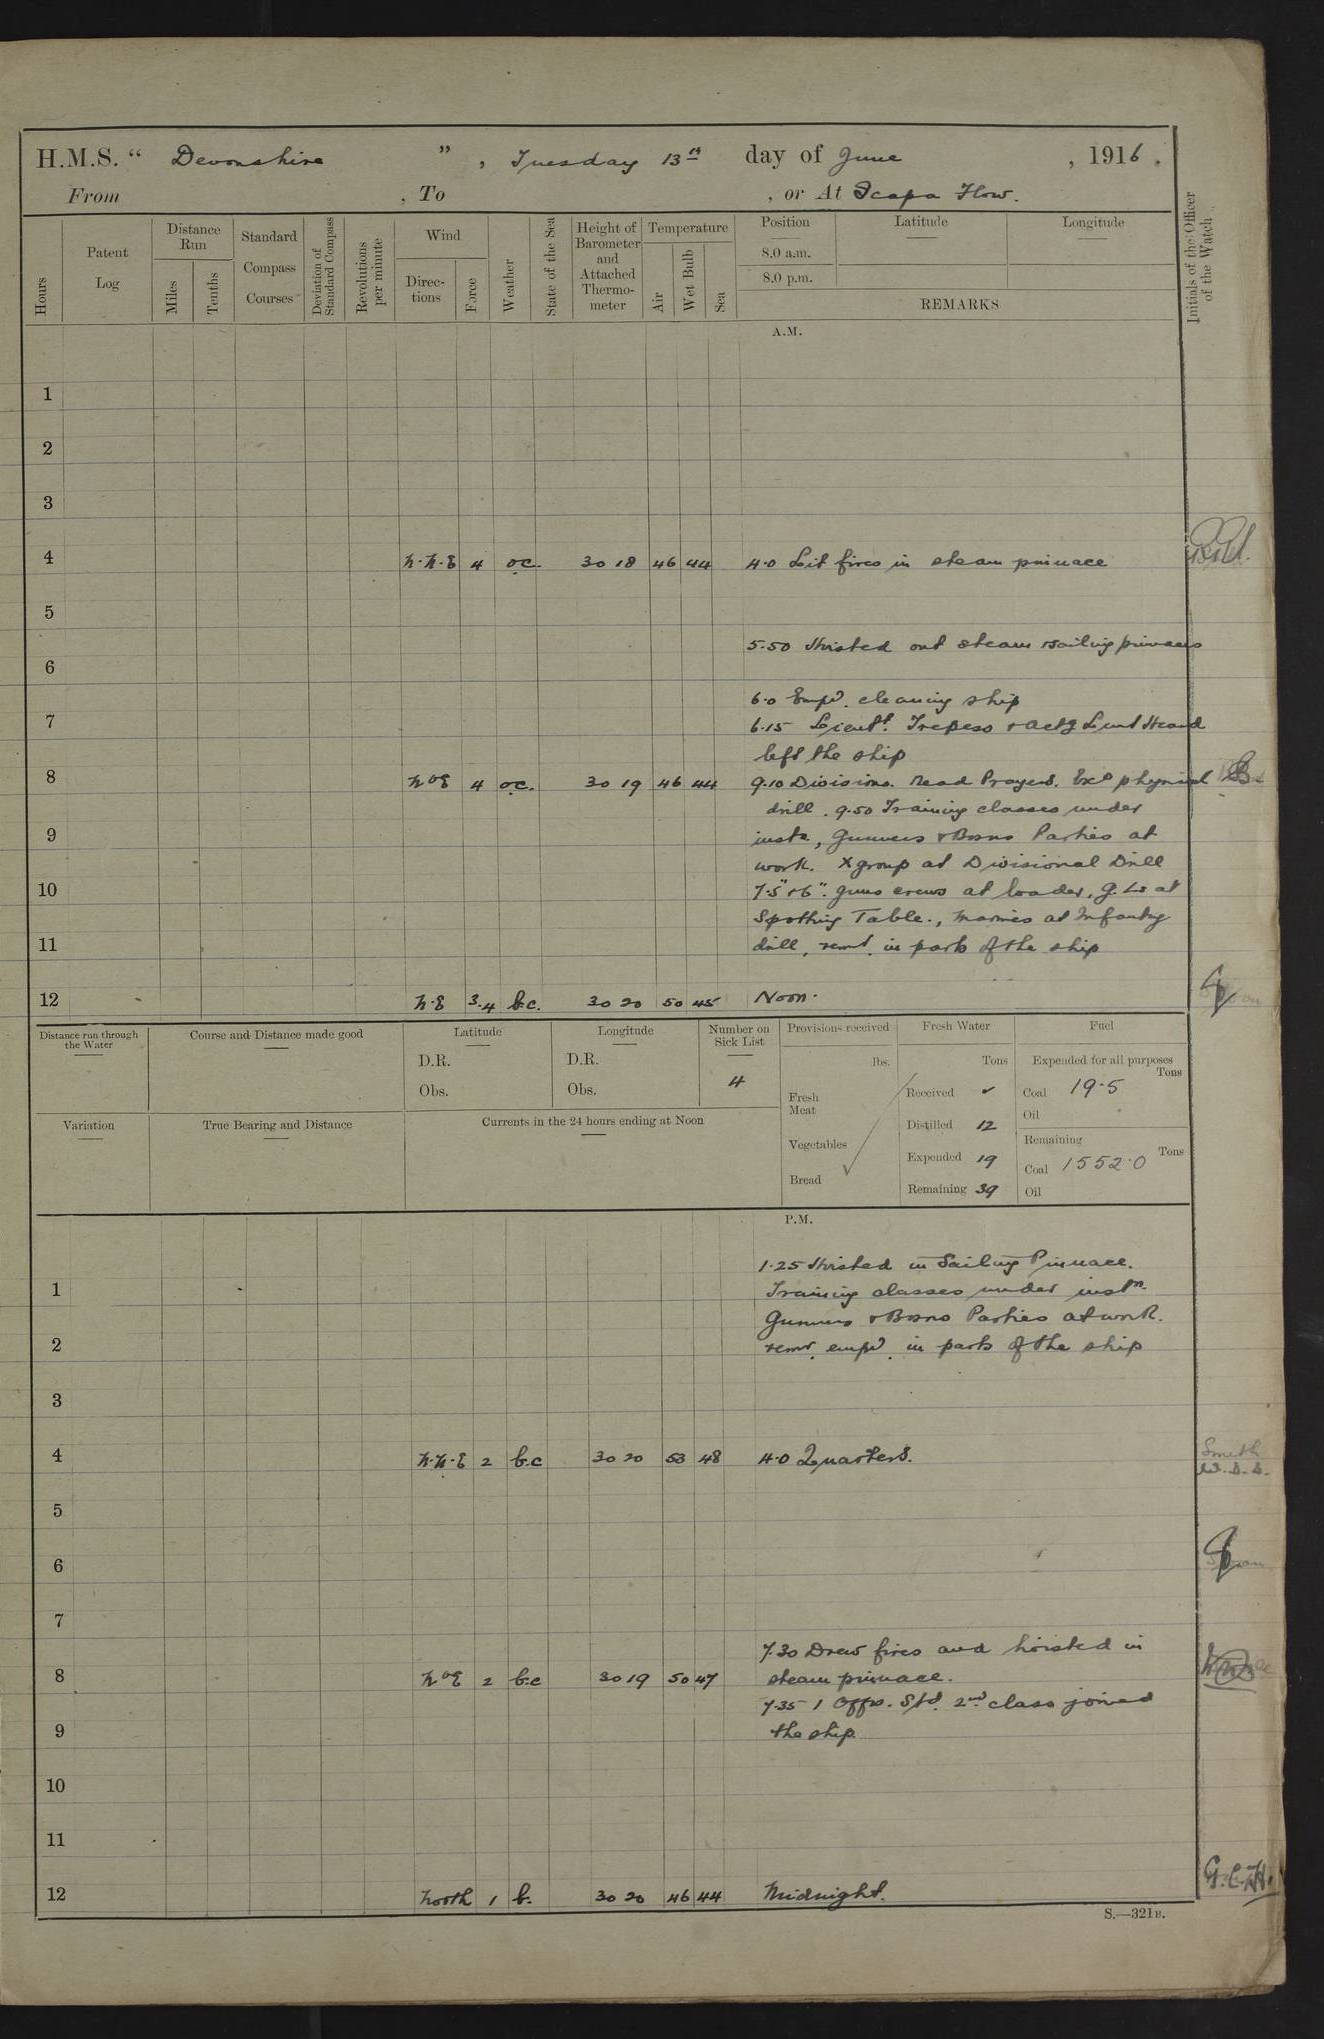 H.M.S. " Devonshire ", Tuesday 13th day of June, 1916.
From , To , or At Scapa Flow.
Hours
Patent Log
Distance Run
Miles
Tenths
Standard Compass Courses
Deviation of Standard Compass
Revolutions per minute
Wind
Directions
Force
Weather
State of the Sea
Height of Barometer and Attached Thermometer
Temperature
Air
Wet Bulb
Sea
Position
8.0 a.m.
8.0 p.m.
Latitude
Longitude
REMARKS
Initials of the Officer of the Watch
A.M.
1
2
3
4 N.N.E 4 oc. 30 18 46 44 4.0 Lit fires in steam pinnace
5
5.50 Hoisted out steam & sailing pinnaces
6
6.0 Empd. cleaning ship
7 6.15 Lieutt. & Actg Lieut Heard
left the ship
8 NbE 4 oc. 30 19 46 44 9.10 Divisions. Read Prayers. Exd physical
drill. 9.50 Training classes under
9 instn, Gunners & Bosns Parties at
work. X group at Divisional Drill
10 7.5" & 6" guns crews at loader, G. Ls at
Spotting Table., Marines at Infantry
11 drill, remr. in parts of the ship
12 N.E 3.4 b.c. 30 20 50 45 Noon.
Distance run through the Water
Course and Distance made good
Latitude
D.R.
Obs.
Longitude
D.R.
Obs.
Number on Sick List
4
Provisions received
lbs.
Fresh Meat
Vegetables
Bread
Fresh Water
Tons
Received ✓
Distilled 12
Expended 19
Remaining 39
Fuel
Expended for all purposes
Tons
Coal 19.5
Oil
Remaining
Tons
Coal 1552.0
Oil
Variation
True Bearing and Distance
Currents in the 24 hours ending at Noon
P.M.
1.25 Hoisted in Sailing Pinnace.
1 Training classes under instn.
Gunners & Bosns Parties at work.
2 remr. empd. in parts of the ship
3
4 N.N.E 2 b.c 30 20 53 48 4.0 Quarters. Smith
W.D.S.
5
6
7
7.30 Drew fires and hoisted in
8 NbE 2 b.c 30 19 50 47 steam pinnace.
7.35 1 Offrs. Std. 2nd class joined
9 the ship.
10
11
12 North 1 b. 30 20 46 44 Midnight. G.C.H.
S.—321B.